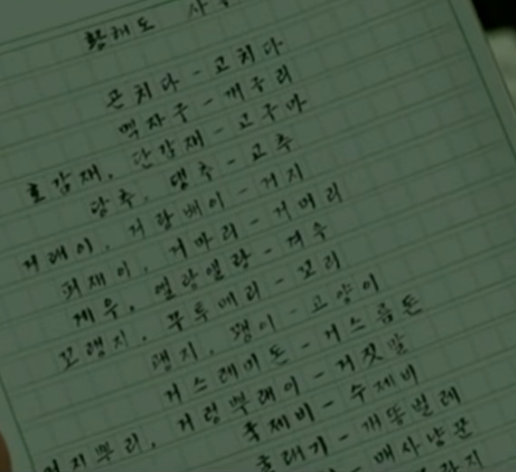 황해도 사
곤치다 - 고치다
멱자구 - 개구리
호감재, 단감재 - 고구마
당추, 댕추 - 고추
거래이, 거랑배이 - 거지
거재이, 거마리 - 거머리
계우, 얼랑얼랑 - 겨우
꼬랭지, 꾸투메리 - 꼬리
괭지, 괭이 - 고양이
거스레미돈 - 거스름돈
거지뿌리, 거렁뿌래이 - 거짓말
국제비 - 수제비
홀태기 - 개똥벌레
- 매사냥꾼